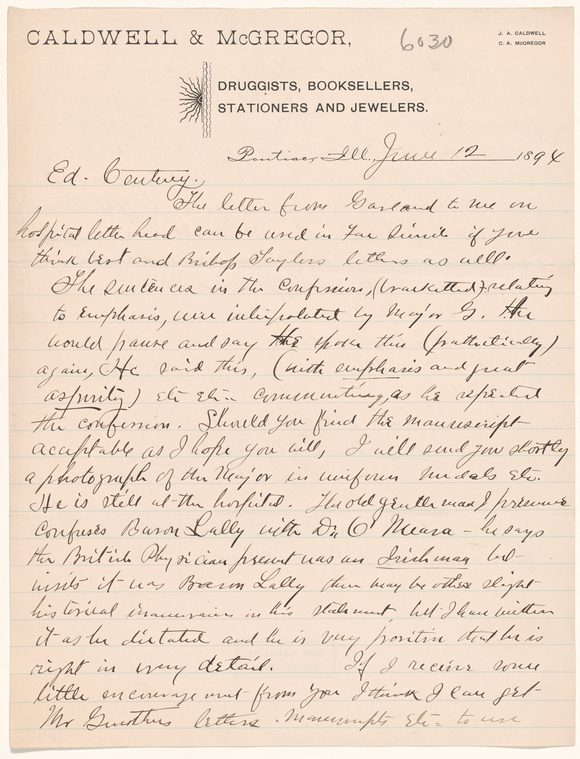 CALDWELL & McGREGOR,
6030
J. A. CALDWELL
C. A. McGREGOR
DRUGGISTS, BOOKSELLERS,
STATIONERS AND JEWELERS.
Pontiac, Ill., June 12 1894
Ed. Century,
The letter from Garland to me on
hospital letter head can be used in Fac Simile if you
think best and Bishop Taylors letters as well.
The sentences in the Confession, (bracketted) relating
to Emphasis, were interpolated by Major G. He
would pause and say He spoke this (pathetically)
again, He said this, (with emphasis and great
asperity) etc etc - commenting, as he repeated
the confession. Should you find the manuscript
acceptable as I hope you will, I will send you shortly
a photograph of the Major in uniform medals etc.
He is still at the hospital. The old gentleman I presume
confuses Baron Lally with Dr. O'Meara - he says
the British Physician present was an Irishman but
insists it was Baron Lally there may be other slight
historical inaccuracies in his statement but I have written
it as he dictated and he is very positive that he is
right in every detail. If I receive some
little encouragement from you I think I can get
Mr letters - Manuscripts etc - to use